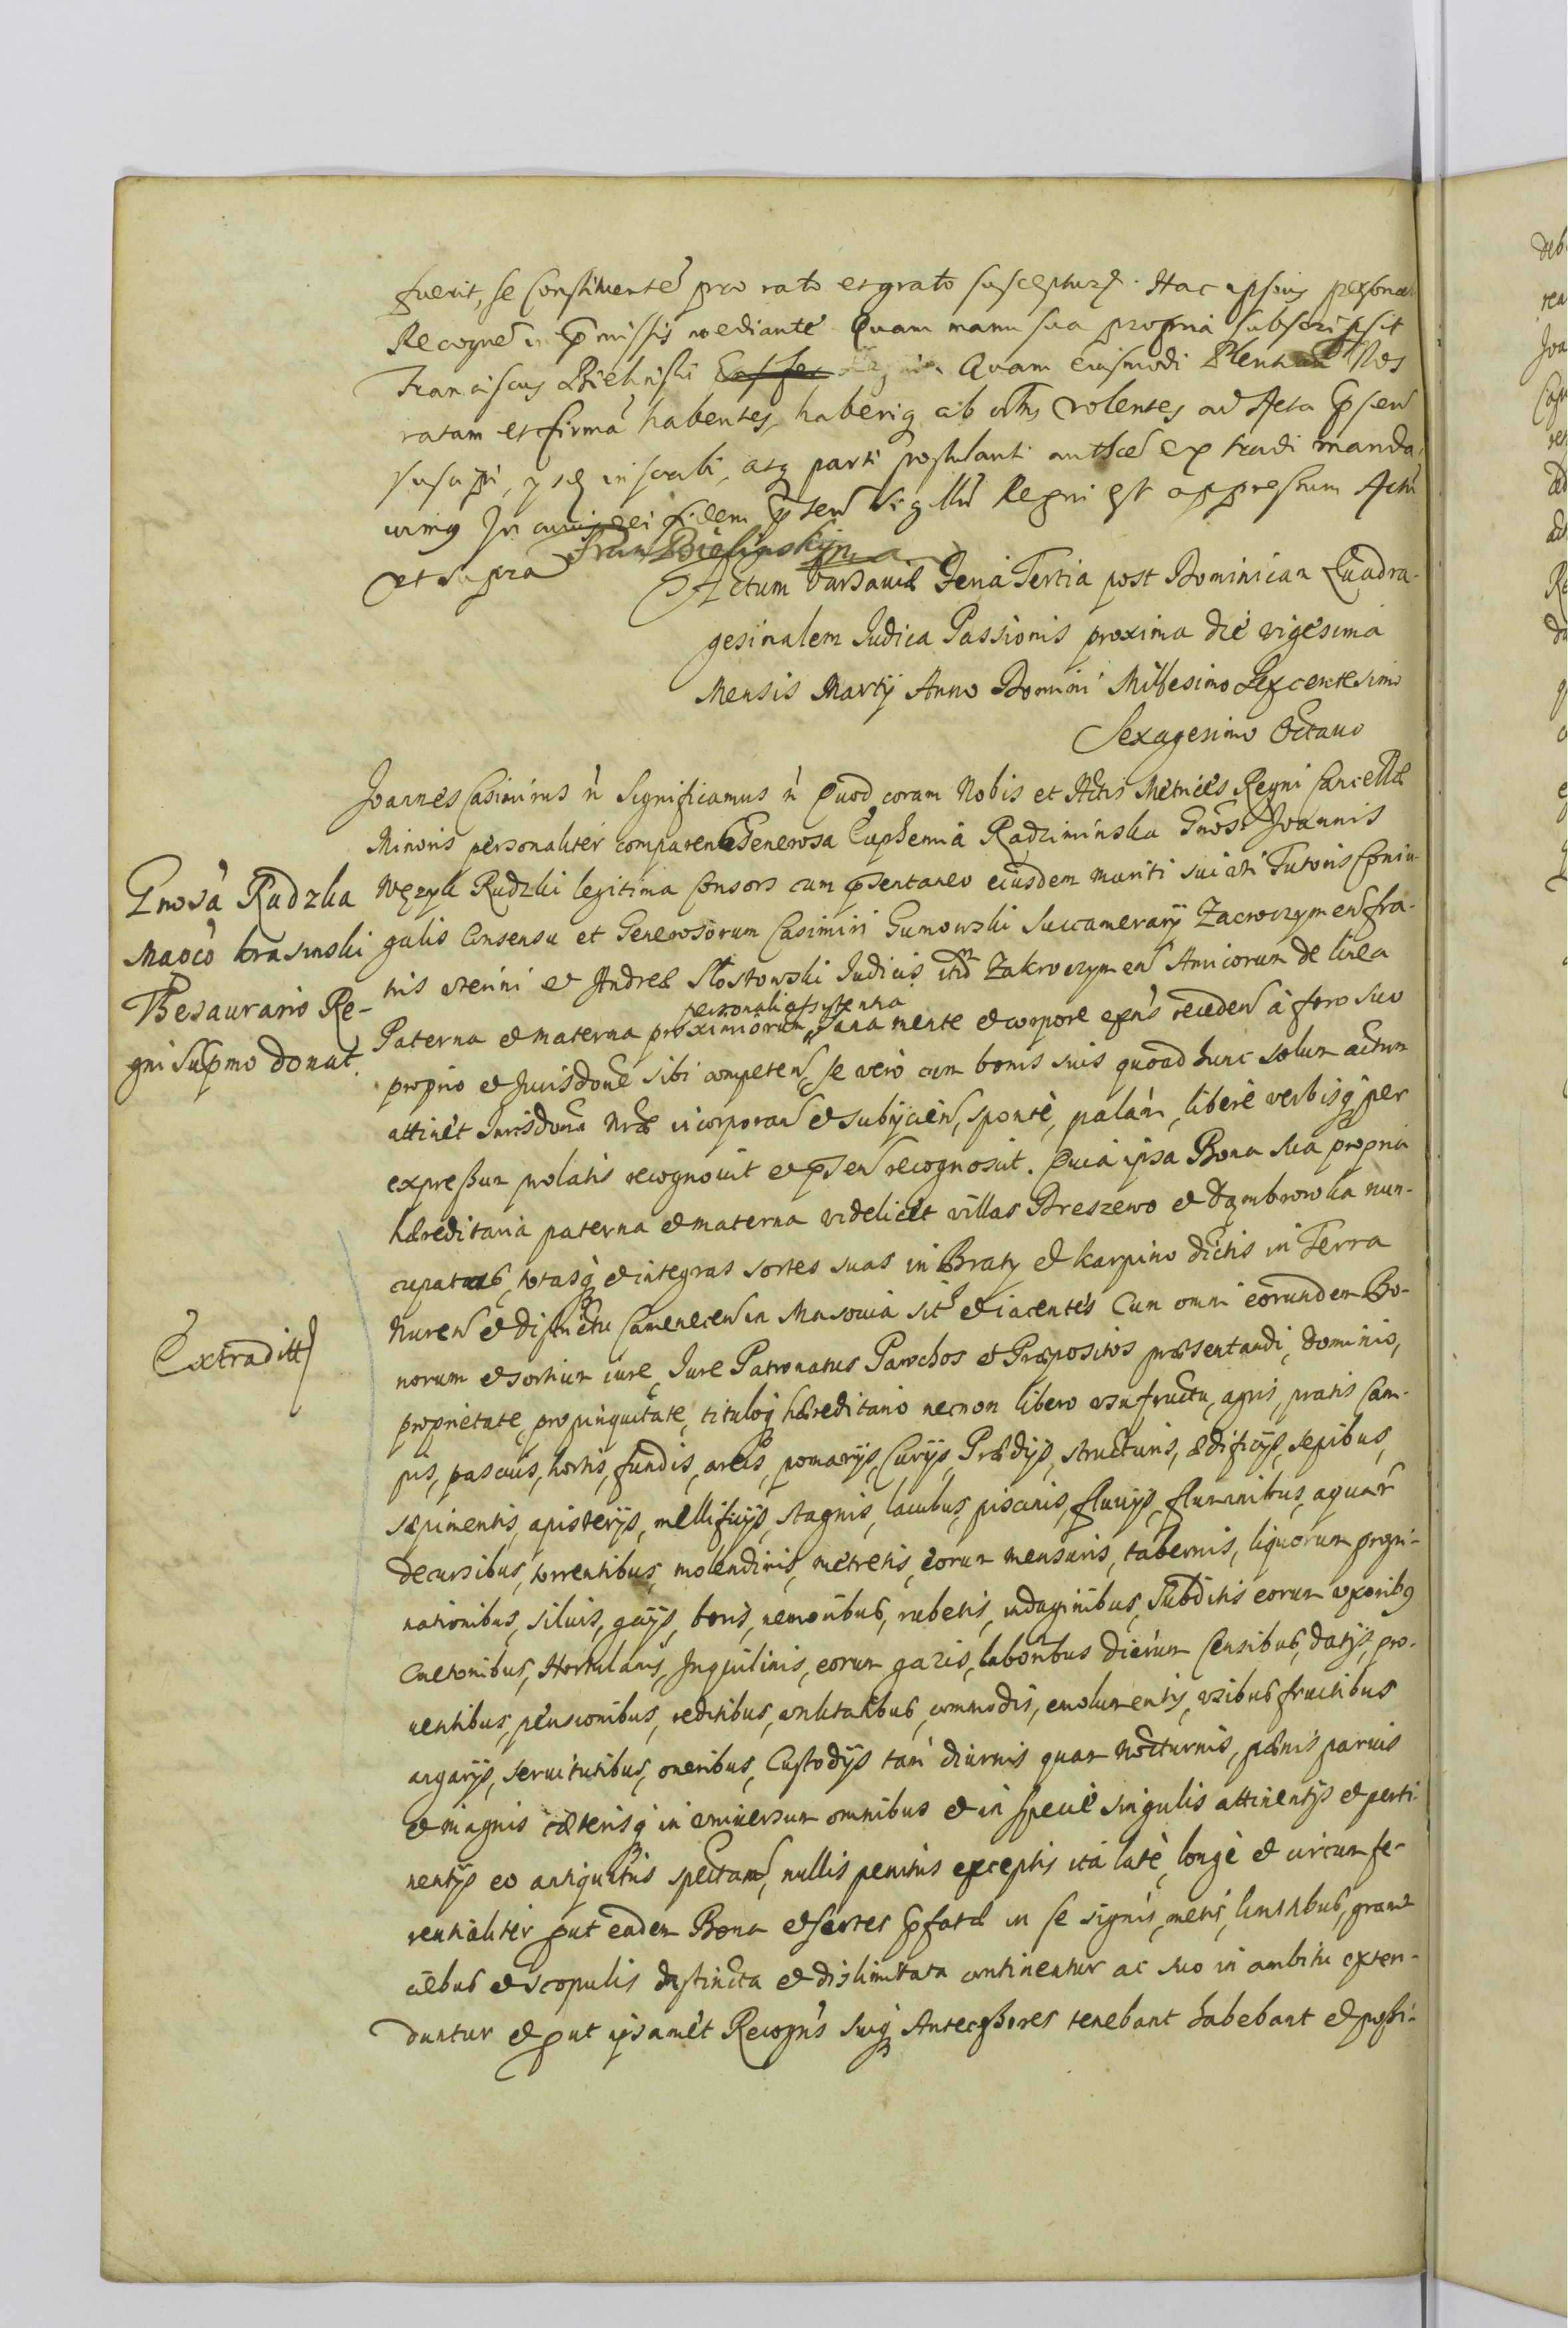 fuerit, se Constituente pro rato et grato suscepturū. Hac ipsius personali
Recogne in pmissis mediante. Quam manu sua propria subscripsit
Franciscus Bielinski Quam eiusmodi Plenitā Nos
ratam et firmā habentes, haberiq ab oībus volentes ad Acta pñsen
suscipi, ijsq inscribi, atq parti postulanti authce extradi manda-
uimus In cuius rei fidem pñsen Sigillū Regni est appressum Actū
ut supra Fran Bielinski mp
Actum Varsaviæ Feria Tertia post Dominicam Quadra-
gesimalem Iudica Passionis proxima die vigesima
Mensis Martij Anno Domini Millesimo Sexcentesimo
Sexagesimo Octavo
Joannes Casimirus ñ Significamus ñ Quod coram Nobis et Actis Metrices Regni Cancellæ
Minoris personaliter comparens Generosa Euphemia Radziminska Gnosi Joannis
Wężyk Rudzki legitima Consors cum pñsentaneo eiusdem mariti sui uti Tutoris Coniu-
galis Consensu et Generosorum Casimiri Gumowski Succamerarij Zacroczymen fra-
tris uterini et Andreæ Mostowski Iudicis itid Zakroczymen Amicorum de linea
personali assistentia
Paterna et materna proximiorum, sana mente et corpore exñs recedens à foro suo
proprio et Jurisdone sibi competen, Se verò cum bonis suis quoad hunc solum actum
attinet Jurisdoni Nræ incorporan et subijcien, sponte, palàm, liberè verbisq per
expressum prolatis recognovit et pñsen recognoscit. Quia ipsa Bona sua propria
hæreditaria paterna et materna videlicet villas Breszewo et Dąmbrowka nun-
cupatas, totasq et integras sortes suas in Braty et Karpino dictis in Terra
Nuren et districtu Camenecen in Masovia sit et iacentes Cum omni eorundem Bo-
norum et sortium iure, Iure Patronatus Parochos et Præpositos præsentandi, dominio,
proprietate, propinquitate, tituloq hæreditario necnon libero usufructu, agris, pratis Cam-
pis, pascuis, hortis, fundis, areis, pomarijs, Curijs, Prædijs, structuris, ædificijs, sepibus,
sæpimentis, apisterijs, mellificijs, stagnis, lacubus, piscinis, fluvijs, fluminibus, aquarū
decursibus, torrentibus, molendinis, metretis, eorum mensuris, tabernis, liquorum propi-
nationibus, silvis, gaijs, boris, nemoribus, rubetis, indaginibus, Subditis eorum uxoribus
Cmetonibus, Hortulanis, Inquilinis, eorum gazis, laboribus dierum Censibus, datijs, pro-
ventibus, pensionibus, reditibus, utilitatibus, commodis, emolumentis, usibus fructibus
angarijs, servitutibus, oneribus, Custodijs tam diurnis quam nocturnis, pænis parvis
et magnis cæterisq in universum omnibus et in specie singulis attinentijs et perti-
nentijs eo antiquitus spectan, nullis penitus exceptis ita latè, longè et circumfe-
rentialiter put eadem Bona et sortes pfatæ in se signis, metis, limitibus, grani-
ciebus et scopulis distincta et dislimitata continentur ac suo in ambitu exten-
duntur et put ipsamet Recogñs suiq Antecessores tenebant habebant et possi-
Gnosa Rudzka
Magco Krasinski
Thesaurario Re-
gni Supmo donat.
Extraditt